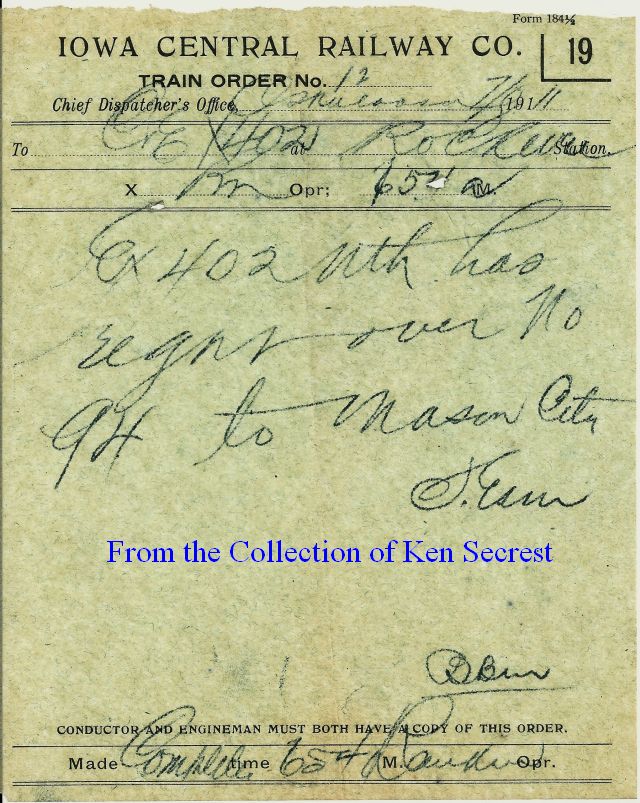 Form 184½
IOWA CENTRAL RAILWAY CO. 19
TRAIN ORDER No. 12
Chief Dispatcher's Office, Oskaloosa 7/ 1911
To C&E X 402 at Rockwell Station.
X Opr; 654 a M.
Ex 402 Nth has
right over No
94 to Mason City
From the Collection of Ken Secrest
CONDUCTOR AND ENGINEMAN MUST BOTH HAVE A COPY OF THIS ORDER.
Made Complete time 654 M. Opr.